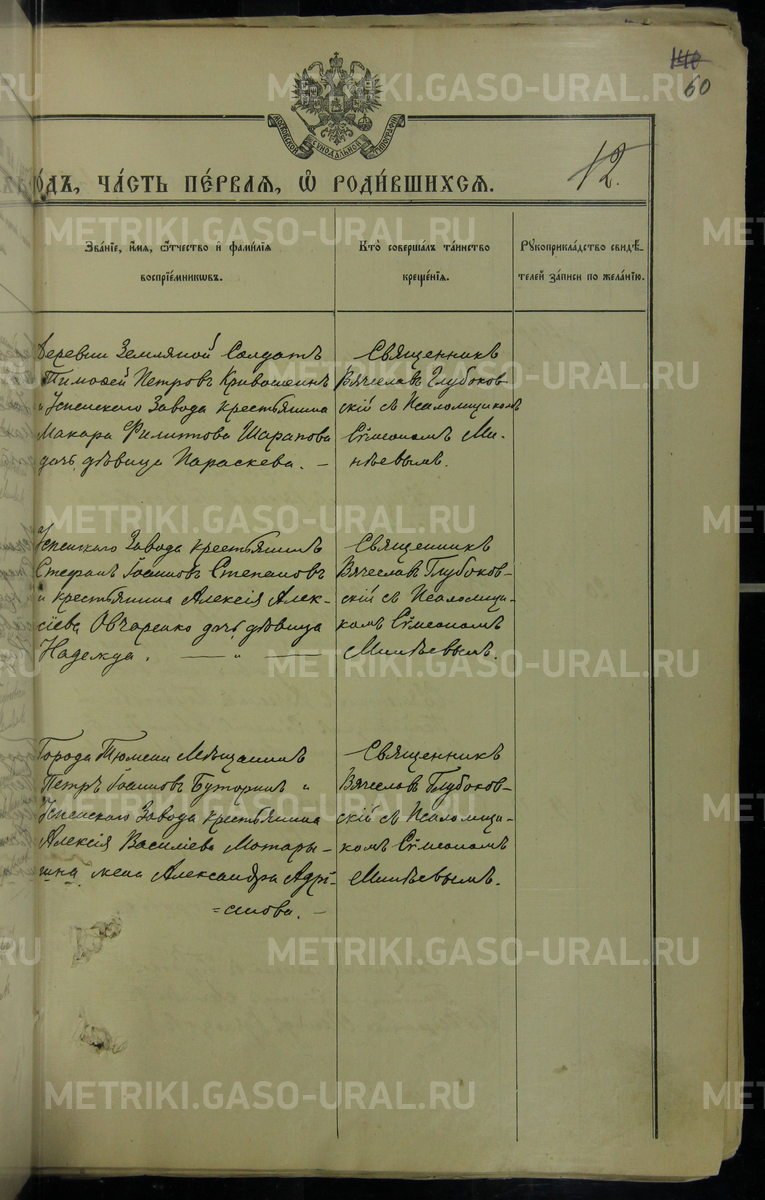 60
МОСКОВСКОЙ СѴНОДАЛЬНОЙ ТИПОГРАФІИ
ГО́ДЪ, ЧА́СТЬ ПЕ́РВАѦ, Ѡ҆ РОДИ́ВШИХСѦ.
12.
Зва́нїе, и҆́мѧ, ѻ҆́тчество и҆ фами́лїѧ
воспрїе́мникѡвъ.
Кто̀ соверша́лъ та́инство
креще́нїѧ.
Рꙋкоприкла́дство свидѣ́-
телей за́писи по жела́нїю.
Деревни Земляной Солдатъ
Тимоѳей Петровъ Кривошеинъ
и Успенскаго Завода крестьянина
Макара Филиппова Шарапова
дочь дѣвица Параскева. —
Священникъ
Вячеславъ Глубоков-
скій съ Псаломщикомъ
Сѵмеономъ Ми-
нѣевымъ.
Успенскаго Завода крестьянинъ
Стефанъ Іоанновъ Степановъ
и крестьянина Алексія Алек-
сіева Овчаренко дочь дѣвица
Надежда. — „ —
Священникъ
Вячеславъ Глубоков-
скій съ Псаломщи-
комъ Сѵмеономъ
Минѣевымъ.
Города Тюмени Мѣщанинъ
Петръ Іоанновъ Буторинъ и
Успенскаго Завода крестьянина
Алексія Василіева Мотары-
гина жена Александра Адрі-
=анова. —
Священникъ
Вячеславъ Глубоков-
скій съ Псаломщи-
комъ Сѵмеономъ
Минѣевымъ.
METRIKI.GASO-URAL.RU